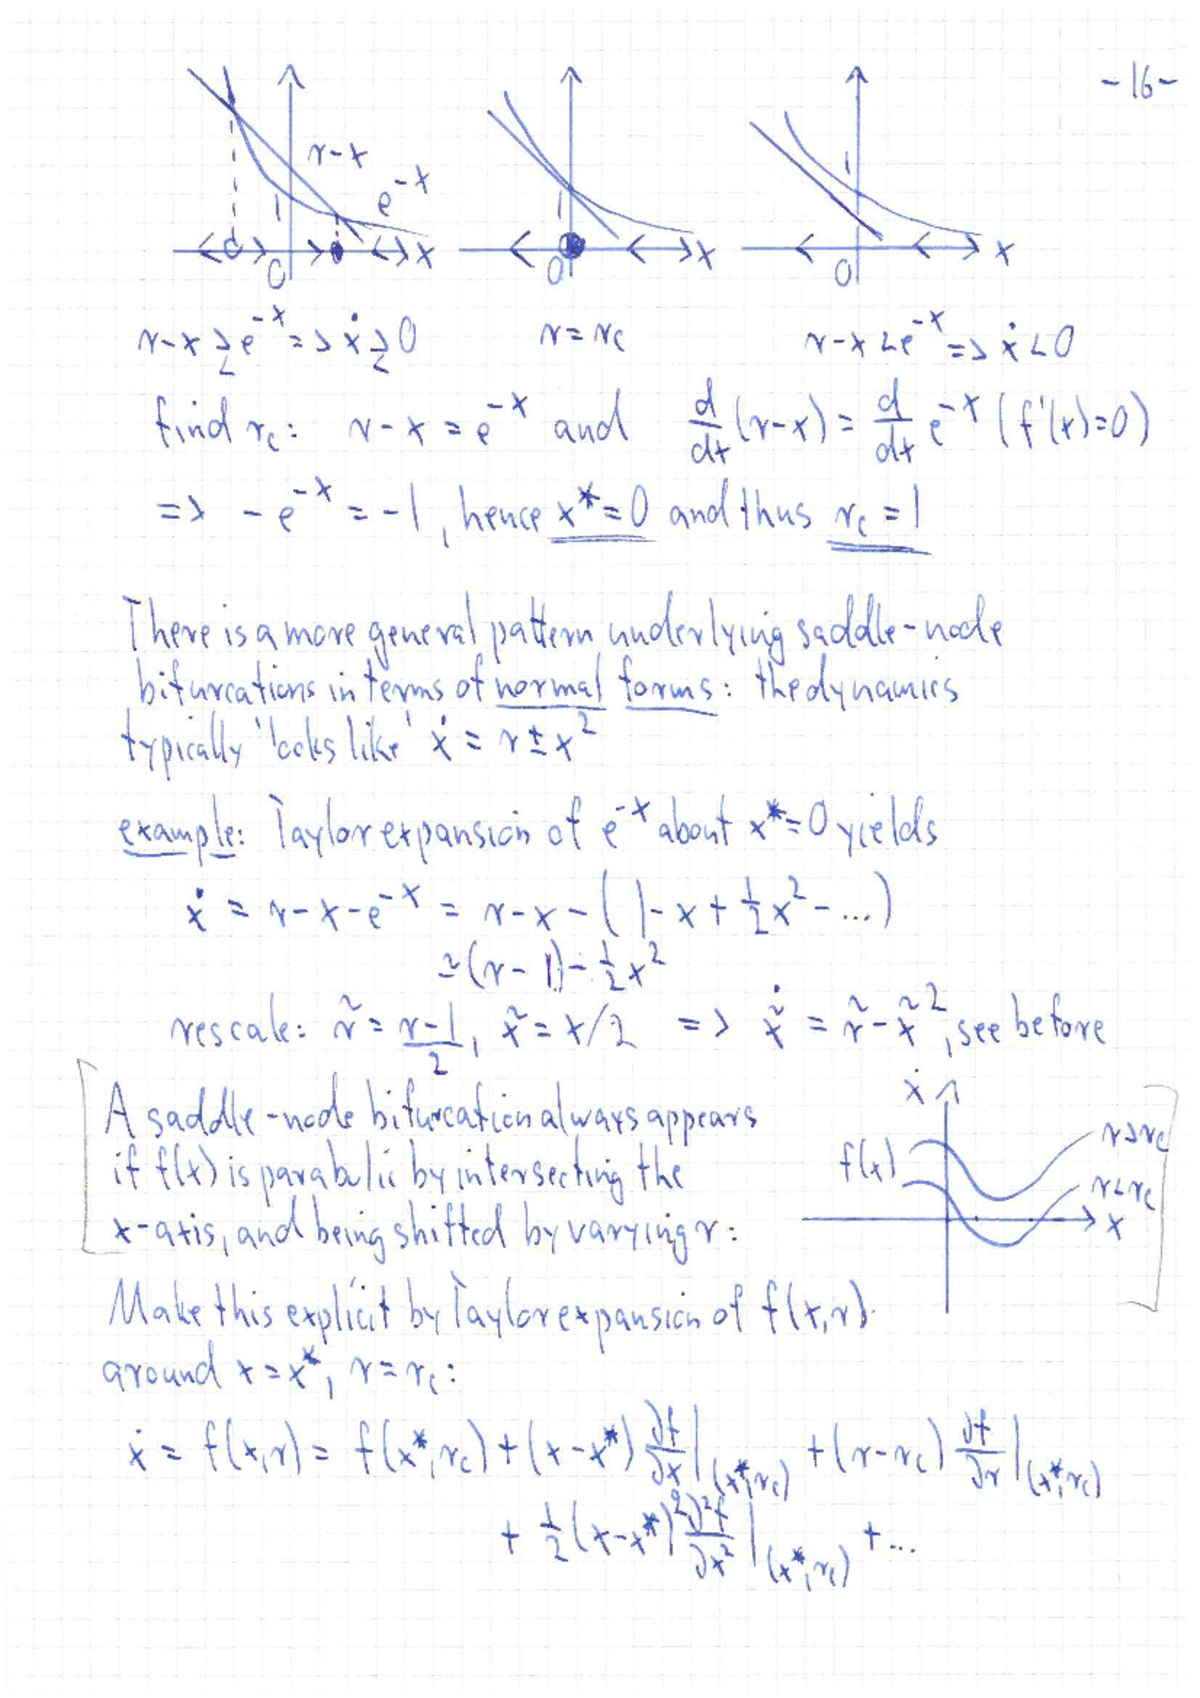 -16-
r-x
e^{-x}
1 1 1
x x x
0 0 0
r-x ≷ e^{-x} => ẋ ≷ 0 r=r_c r-x < e^{-x} => ẋ < 0
find r_c: r-x = e^{-x} and d/dx (r-x) = d/dx e^{-x} (f'(x)=0)
=> -e^{-x} = -1, hence x*=0 and thus r_c = 1
There is a more general pattern underlying saddle-node
bifurcations in terms of normal forms: the dynamics
typically 'looks like' ẋ = r ± x²
example: Taylor expansion of e^{-x} about x*=0 yields
ẋ = r-x-e^{-x} = r-x-(1-x+½x²-...)
≃ (r-1)-½x²
rescale: r̃ = (r-1)/2, x̃ = x/2 => x̃̇ = r̃ - x̃², see before
A saddle-node bifurcation always appears
if f(x) is parabolic by intersecting the
x-axis, and being shifted by varying r:
ẋ
f(x)
r>r_c
r<r_c
x
Make this explicit by Taylor expansion of f(x,r)
around x=x*, r=r_c:
ẋ = f(x,r) = f(x*,r_c) + (x-x*) ∂f/∂x |_(x*,r_c) + (r-r_c) ∂f/∂r |_(x*,r_c)
+ ½(x-x*)² ∂²f/∂x² |_(x*,r_c) + ...